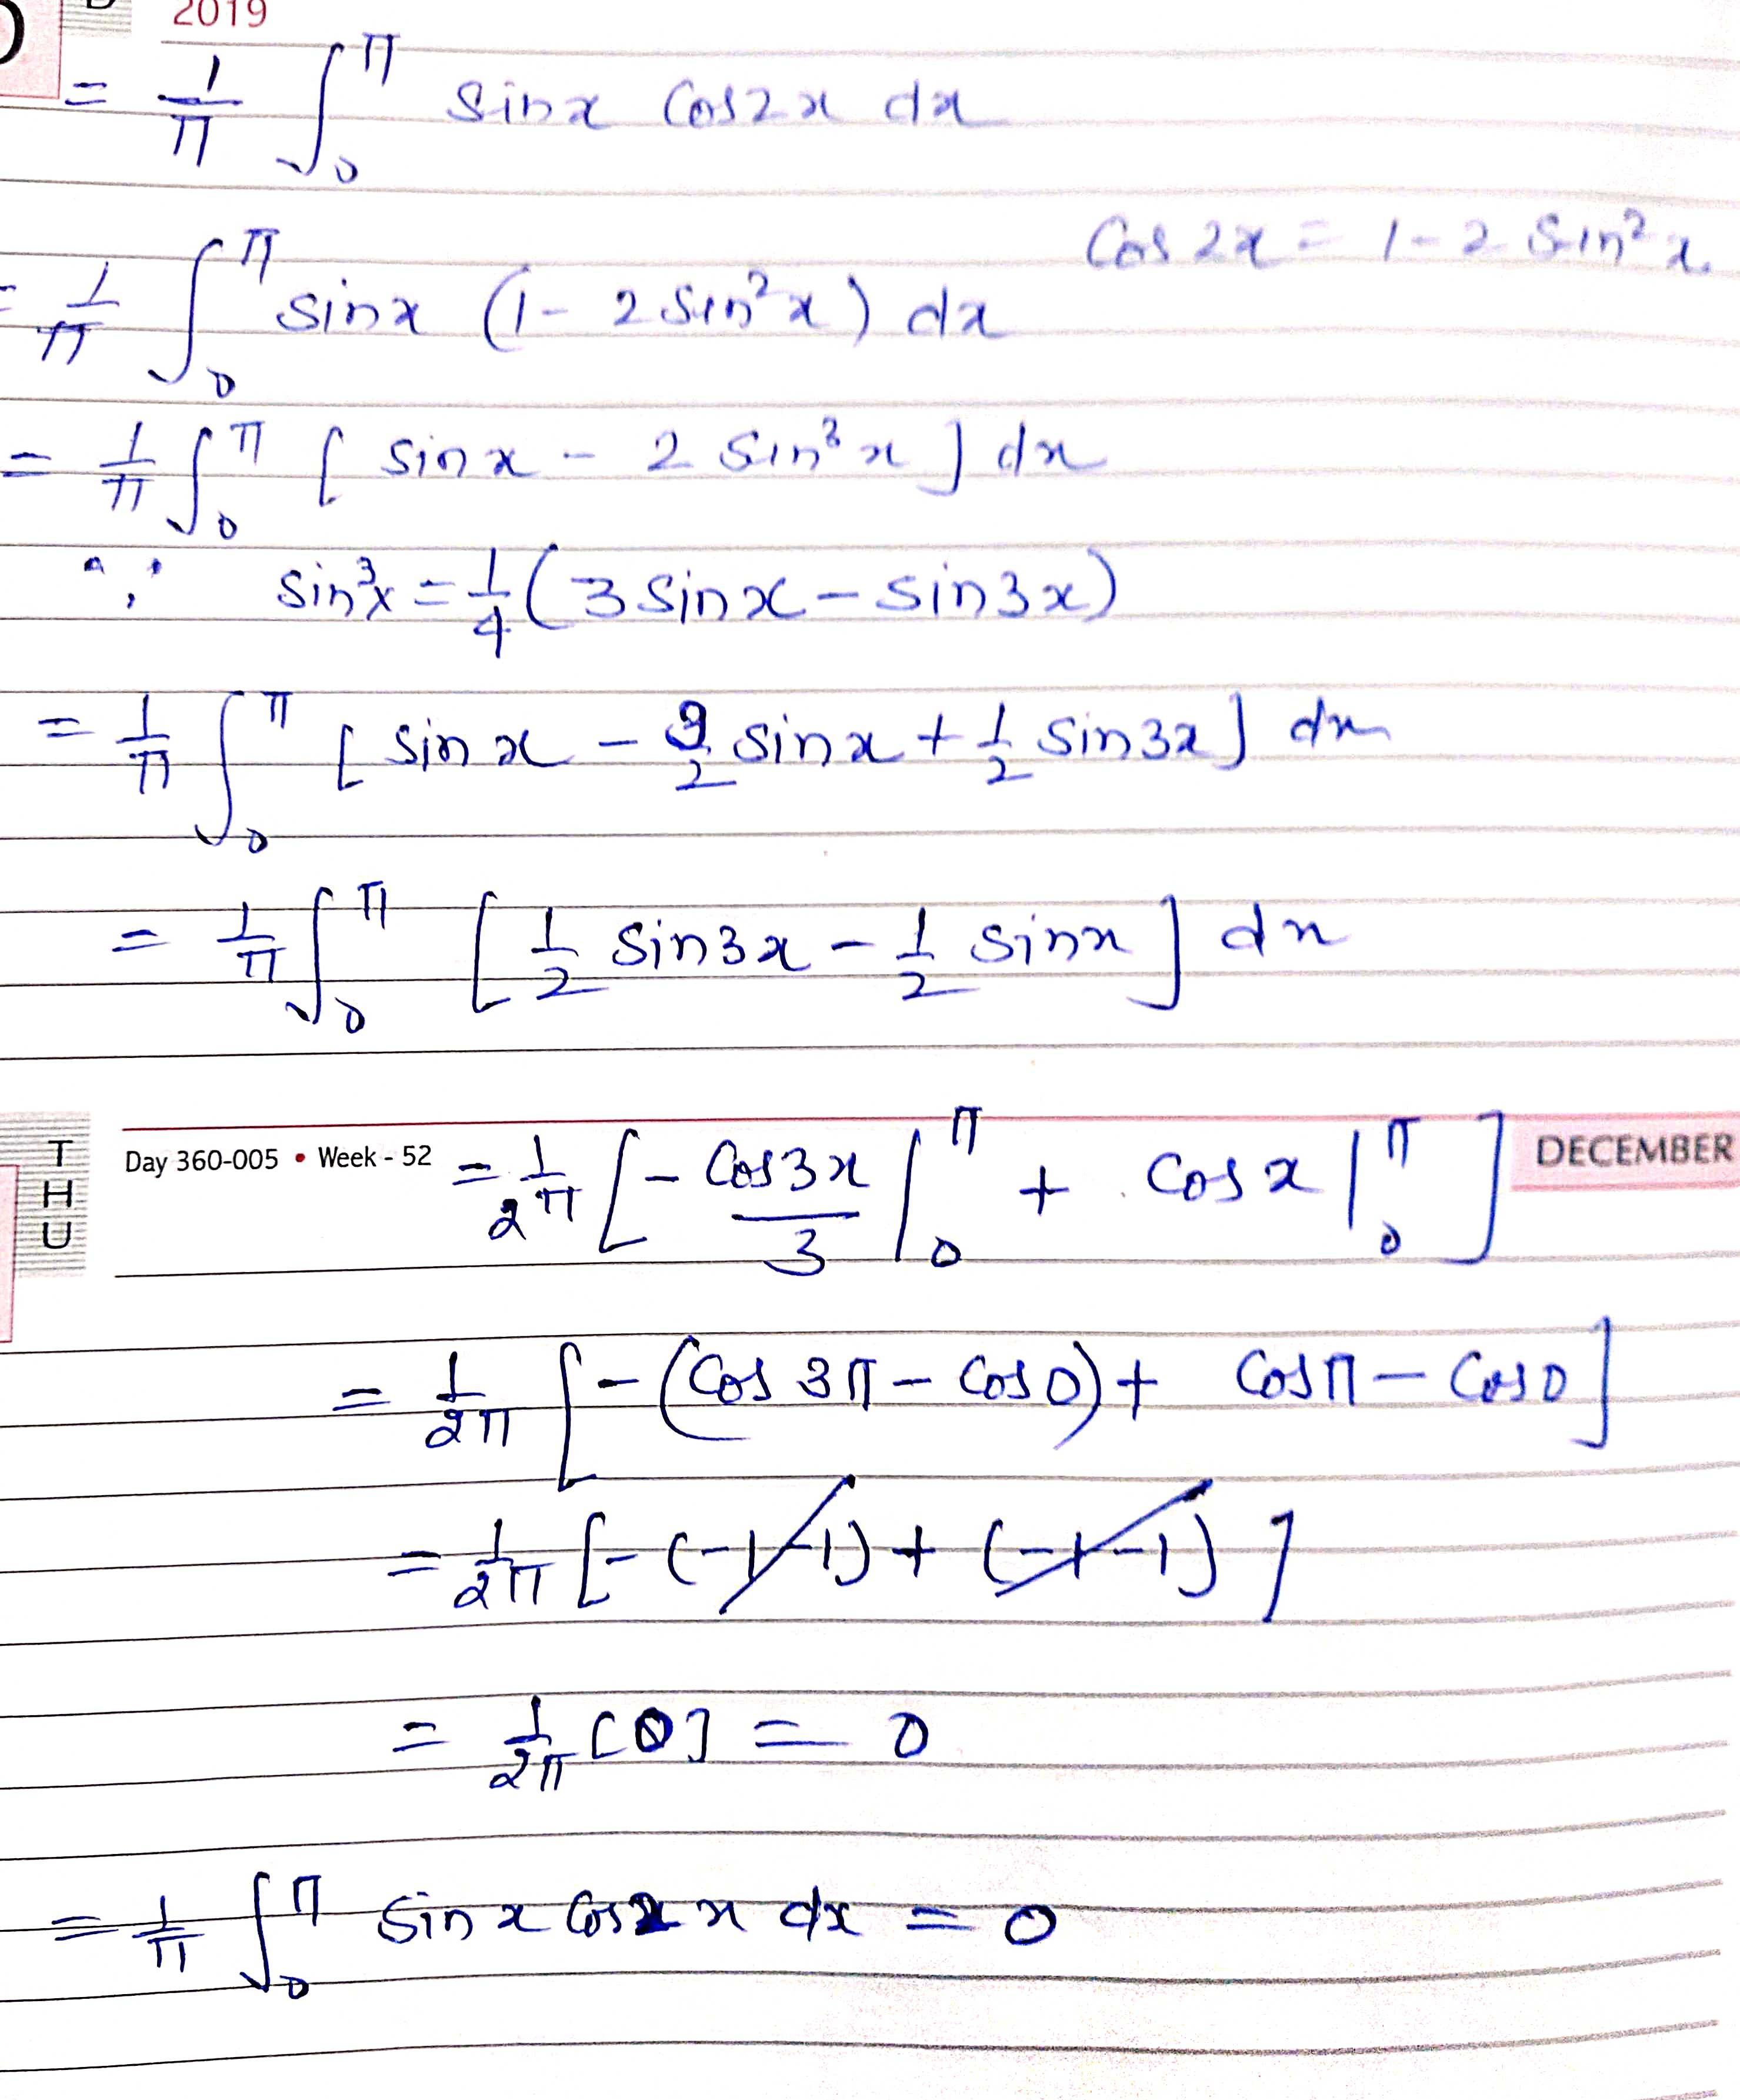 2019
= 1/π ∫₀^π sinx cos2x dx
cos 2x = 1 - 2 sin²x.
= 1/π ∫₀^π sinx (1 - 2 sin²x) dx
= 1/π ∫₀^π [ sinx - 2 sin³x ] dx
∵ sin³x = 1/4 (3 sinx - sin3x)
= 1/π ∫₀^π [ sinx - 3/2 sinx + 1/2 sin3x ] dx
= 1/π ∫₀^π [ 1/2 sin3x - 1/2 sinx ] dx
THU
Day 360-005 • Week - 52
DECEMBER
= 1/2π [ - cos3x/3 |₀^π + cosx |₀^π ]
= 1/2π [ - (cos 3π - cos 0) + cosπ - cos0 ]
= 1/2π [ - (-1-1) + (-1-1) ]
= 1/2π [0] = 0
= 1/π ∫₀^π sinx cos2x dx = 0